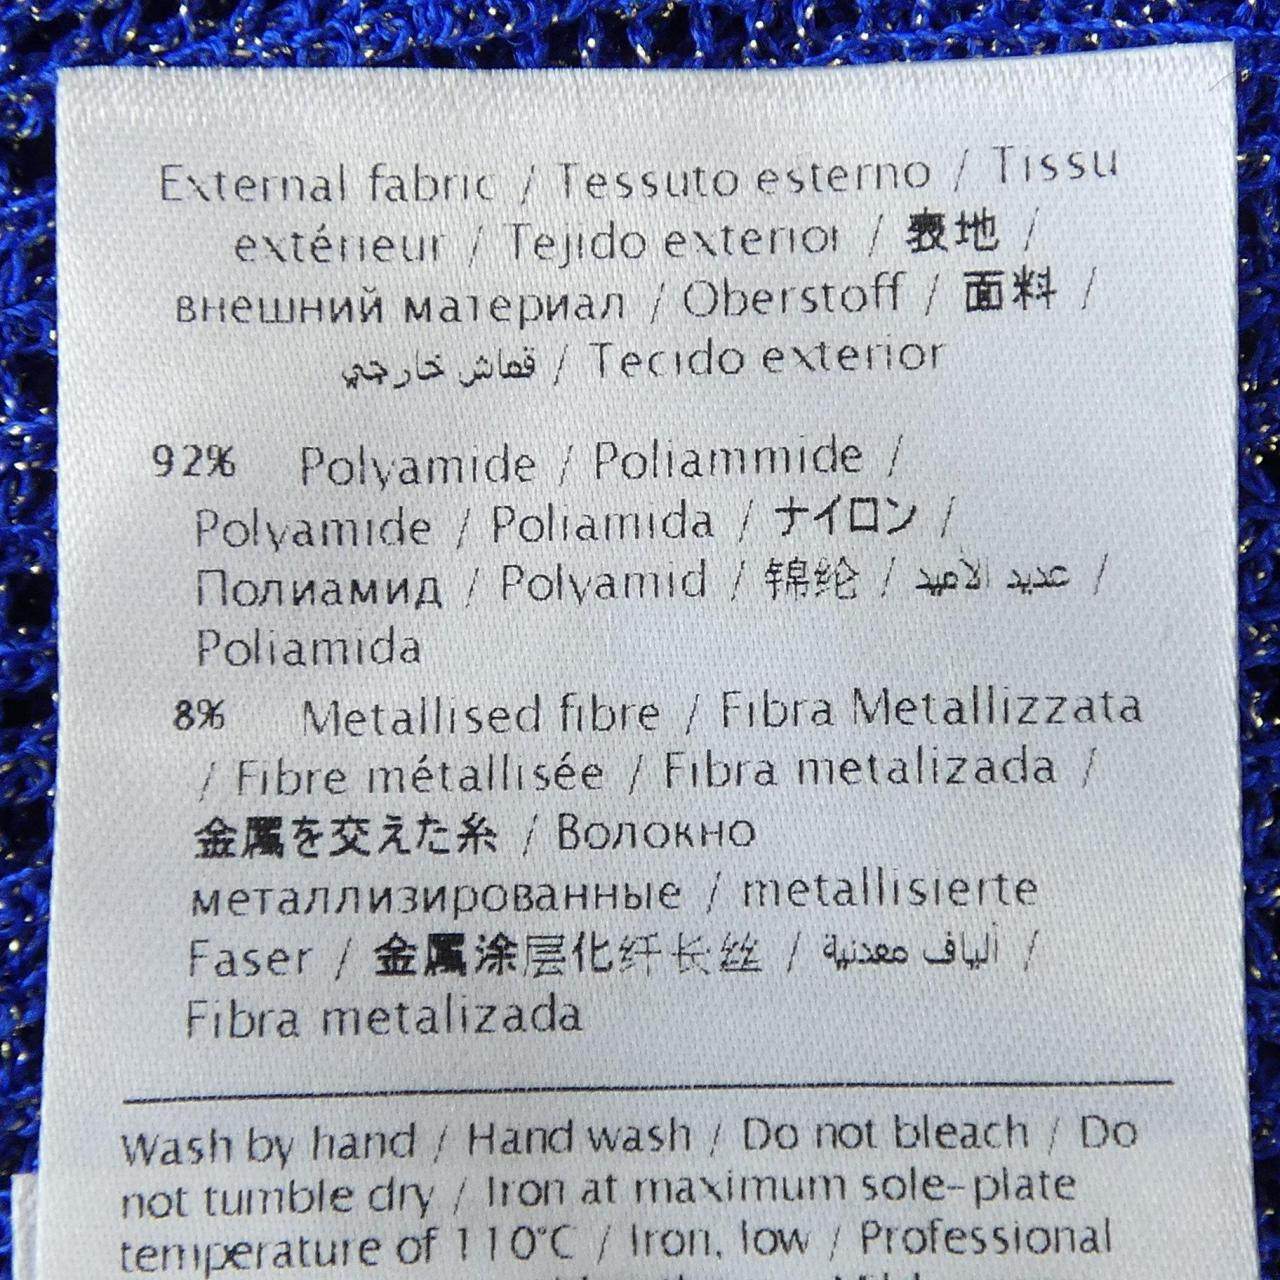 External fabric / Tessuto esterno / Tissu
extérieur / Tejido exterior / 表地 /
внешний материал / Oberstoff / 面料 /
قماش خارجي / Tecido exterior
92% Polyamide / Poliammide /
Polyamide / Poliamida / ナイロン /
Полиамид / Polyamid / 锦纶 / عديد الاميد /
Poliamida
8% Metallised fibre / Fibra Metallizzata
/ Fibre métallisée / Fibra metalizada /
金属を交えた糸 / Волокно
металлизированные / metallisierte
Faser / 金属涂层化纤长丝 / ألياف معدنية /
Fibra metalizada
Wash by hand / Hand wash / Do not bleach / Do
not tumble dry / Iron at maximum sole-plate
temperature of 110°C / Iron, low / Professional